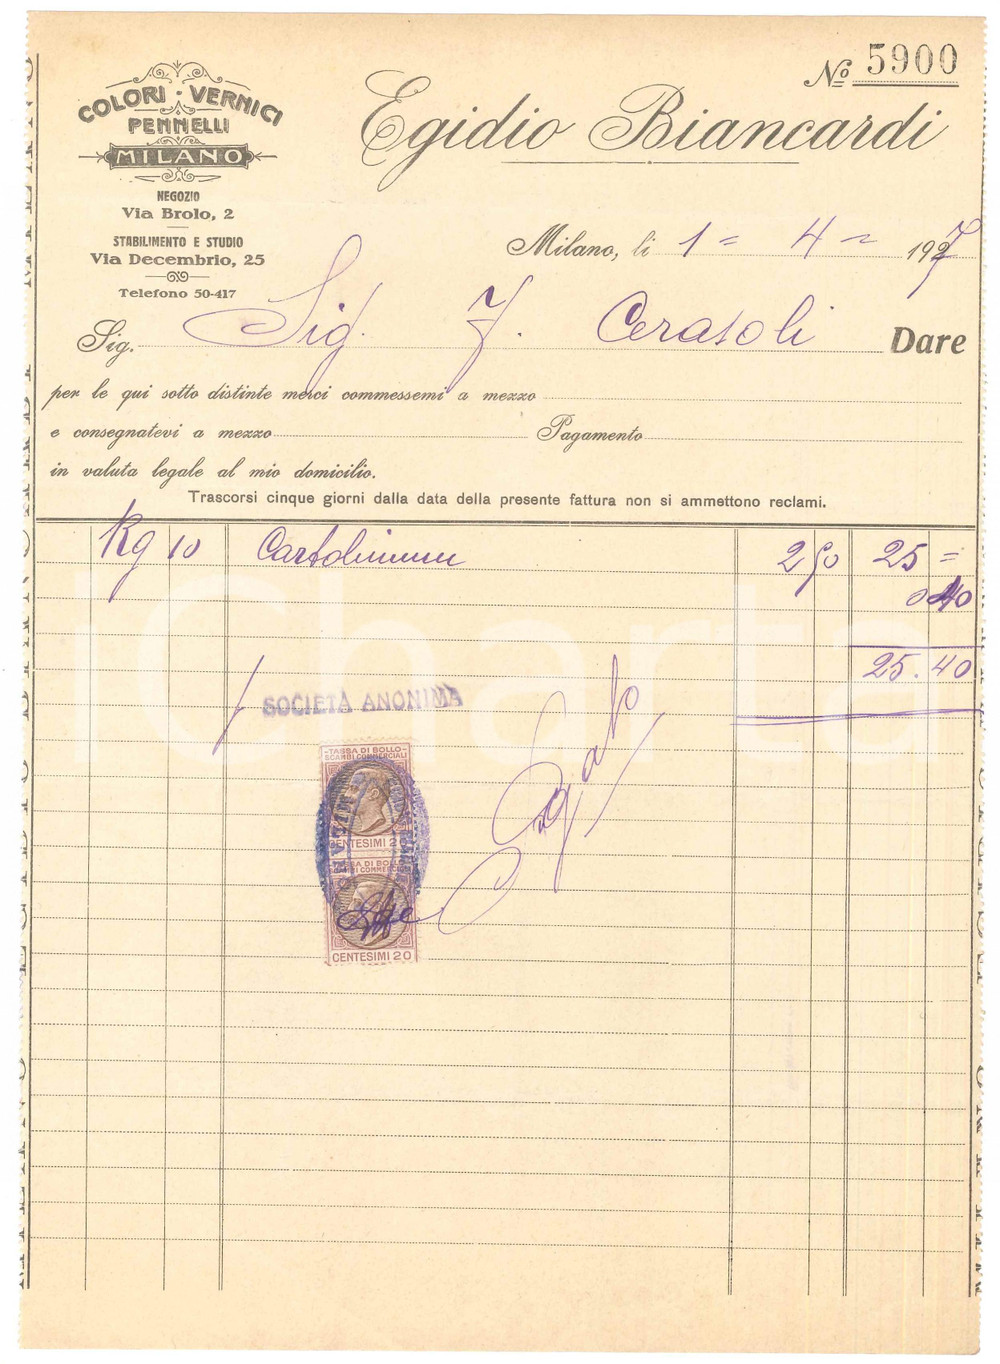 COLORI - VERNICI
PENNELLI
MILANO
NEGOZIO
Via Brolo, 2
STABILIMENTO E STUDIO
Via Decembrio, 25
Telefono 50-417
No 5900
Egidio Biancardi
Milano, li 1 = 4 = 1927
Sig. Sig. F. Cerasoli Dare
per le qui sotto distinte merci commessemi a mezzo
e consegnatevi a mezzo Pagamento
in valuta legale al mio domicilio.
Trascorsi cinque giorni dalla data della presente fattura non si ammettono reclami.
Kg 10 2 50 25 =
0 40
25.40
SOCIETÀ ANONIMA
Pagato
TASSA DI BOLLO
SCAMBI COMMERCIALI
CENTESIMI 20
TASSA DI BOLLO
SCAMBI COMMERCIALI
CENTESIMI 20
iCharta